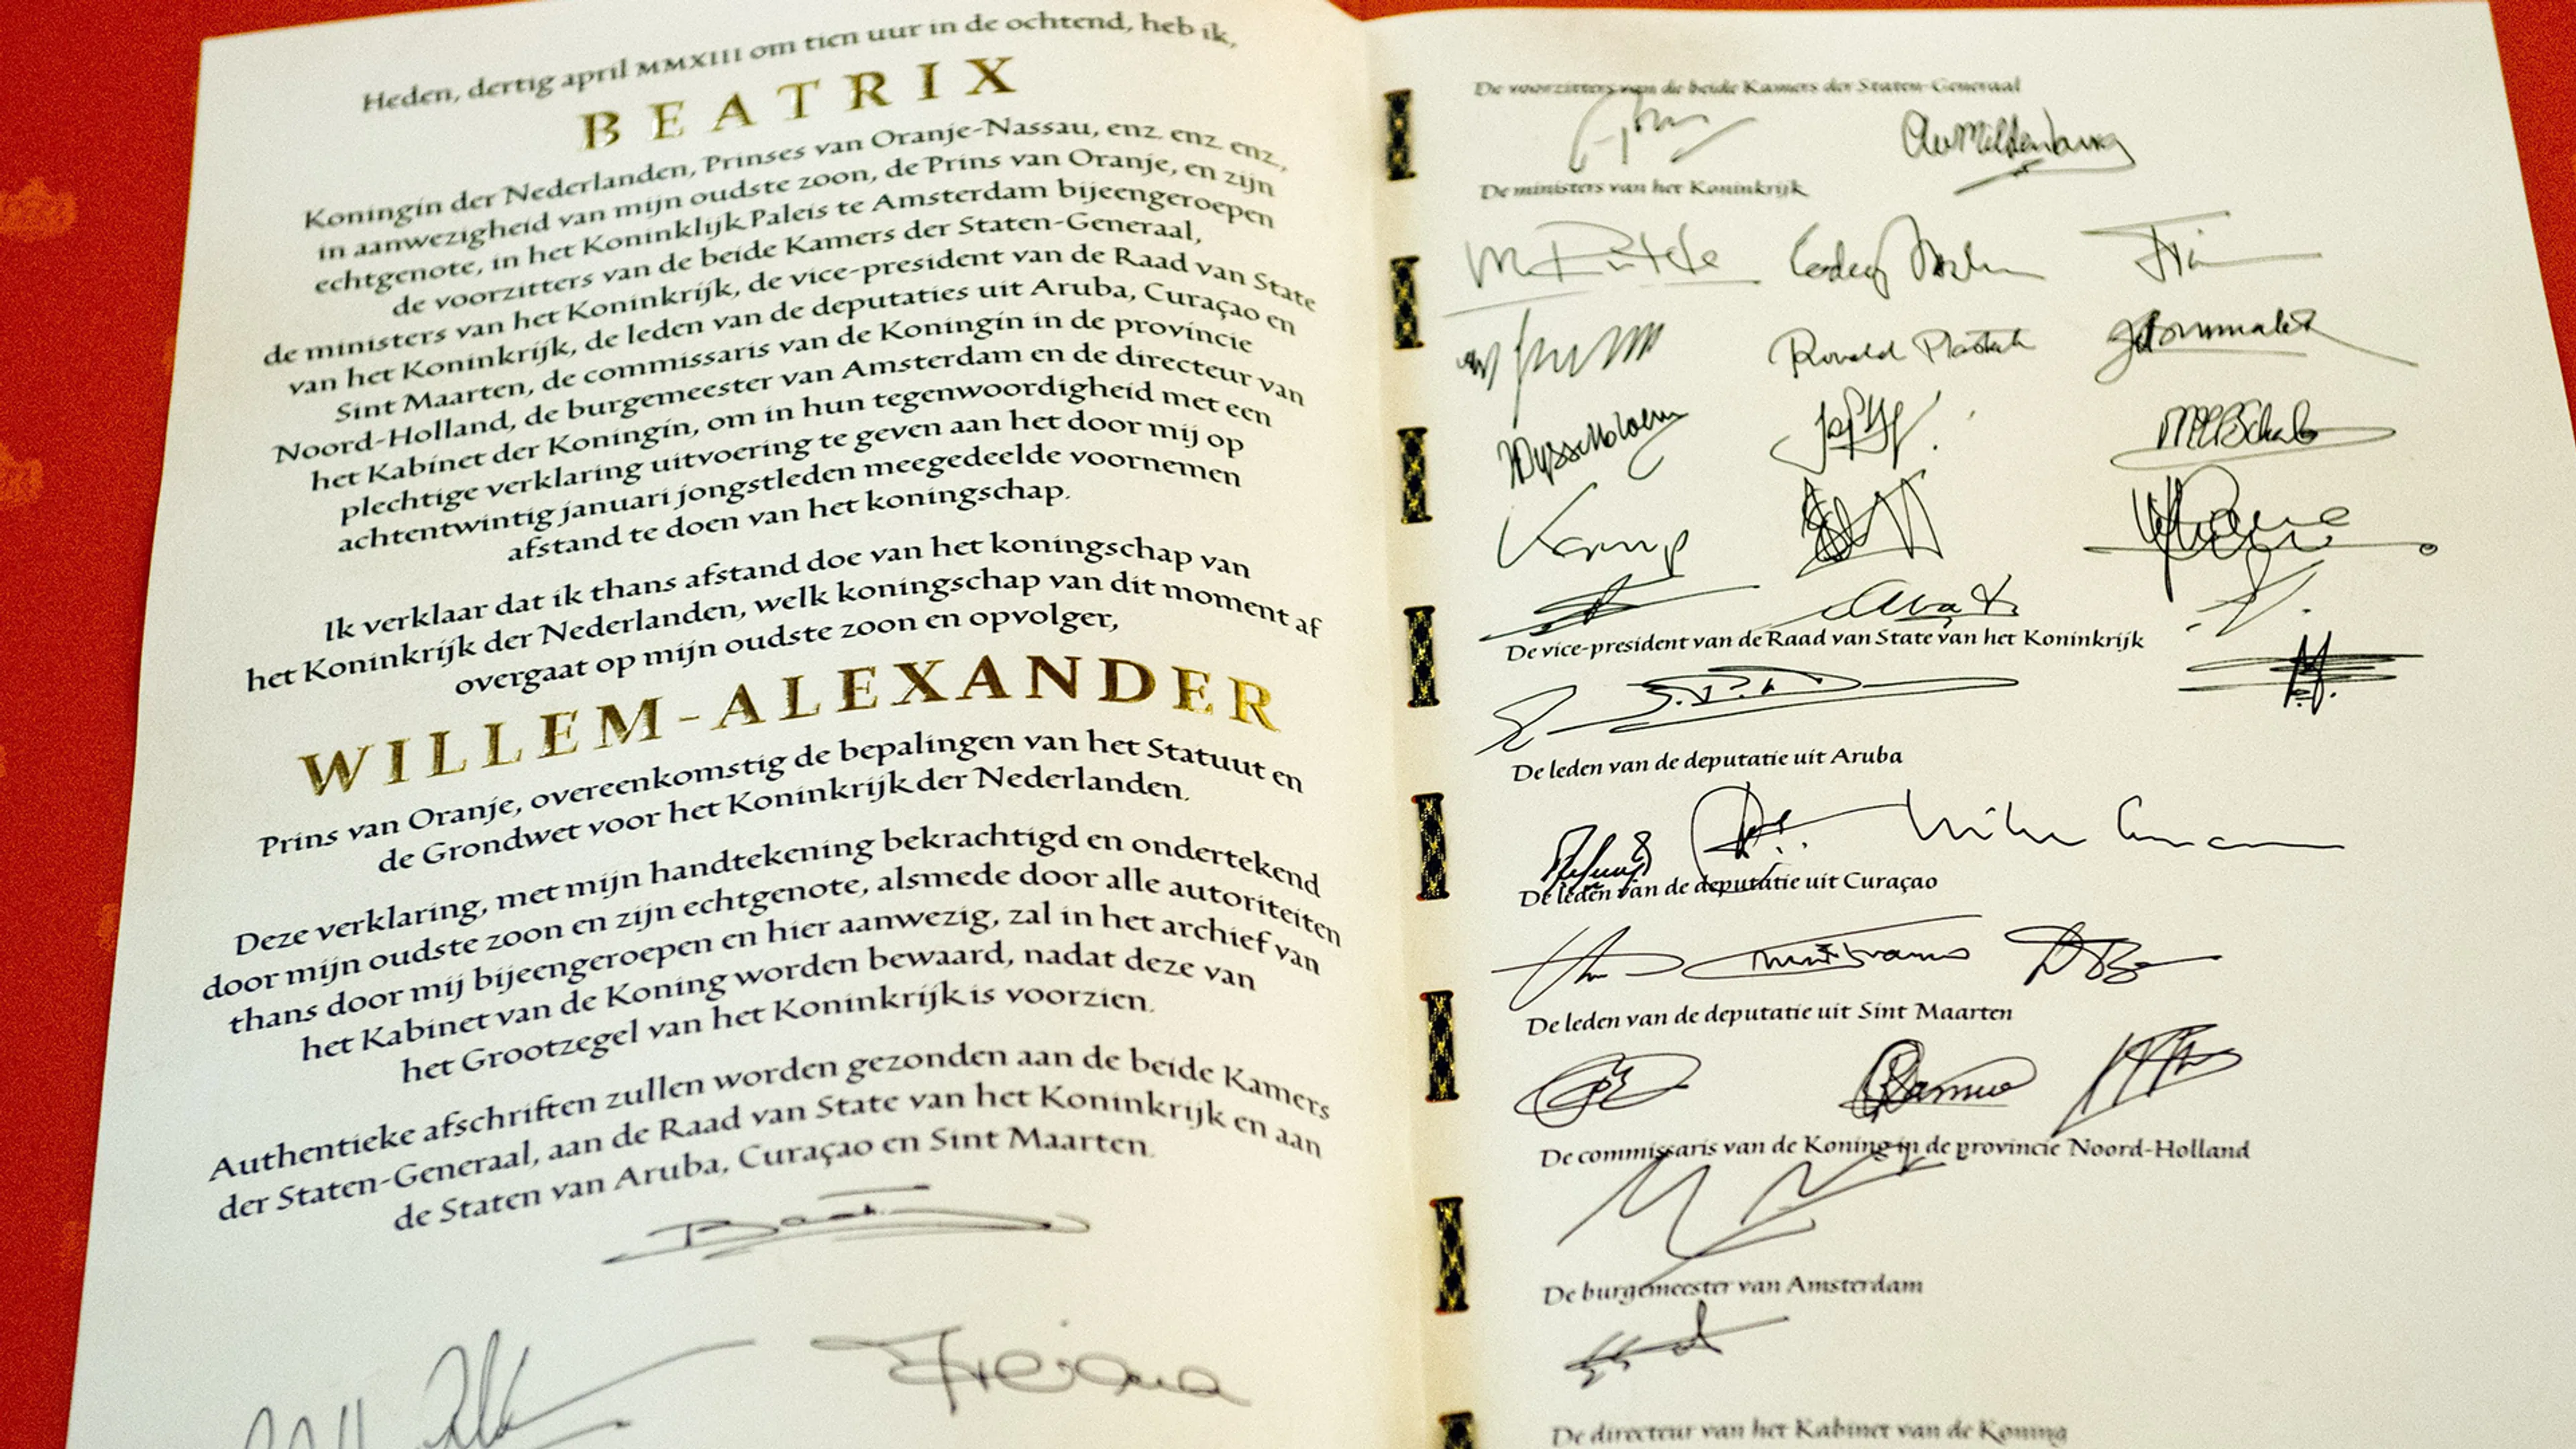 Heden, dertig april MMXIII om tien uur in de ochtend, heb ik,
BEATRIX
Koningin der Nederlanden, Prinses van Oranje-Nassau, enz. enz. enz.,
in aanwezigheid van mijn oudste zoon, de Prins van Oranje, en zijn
echtgenote, in het Koninklijk Paleis te Amsterdam bijeengeroepen
de voorzitters van de beide Kamers der Staten-Generaal,
de ministers van het Koninkrijk, de vice-president van de Raad van State
van het Koninkrijk, de leden van de deputaties uit Aruba, Curaçao en
Sint Maarten, de commissaris van de Koningin in de provincie
Noord-Holland, de burgemeester van Amsterdam en de directeur van
het Kabinet der Koningin, om in hun tegenwoordigheid met een
plechtige verklaring uitvoering te geven aan het door mij op
achtentwintig januari jongstleden meegedeelde voornemen
afstand te doen van het koningschap.
Ik verklaar dat ik thans afstand doe van het koningschap van
het Koninkrijk der Nederlanden, welk koningschap van dit moment af
overgaat op mijn oudste zoon en opvolger,
WILLEM-ALEXANDER
Prins van Oranje, overeenkomstig de bepalingen van het Statuut en
de Grondwet voor het Koninkrijk der Nederlanden.
Deze verklaring, met mijn handtekening bekrachtigd en ondertekend
door mijn oudste zoon en zijn echtgenote, alsmede door alle autoriteiten
thans door mij bijeengeroepen en hier aanwezig, zal in het archief van
het Kabinet van de Koning worden bewaard, nadat deze van
het Grootzegel van het Koninkrijk is voorzien.
Authentieke afschriften zullen worden gezonden aan de beide Kamers
der Staten-Generaal, aan de Raad van State van het Koninkrijk en aan
de Staten van Aruba, Curaçao en Sint Maarten.
De voorzitters van de beide Kamers der Staten-Generaal
De ministers van het Koninkrijk
M Rutte
Ronald Plasterk
De vice-president van de Raad van State van het Koninkrijk
De leden van de deputatie uit Aruba
De leden van de deputatie uit Curaçao
De leden van de deputatie uit Sint Maarten
De commissaris van de Koning in de provincie Noord-Holland
De burgemeester van Amsterdam
De directeur van het Kabinet van de Koning